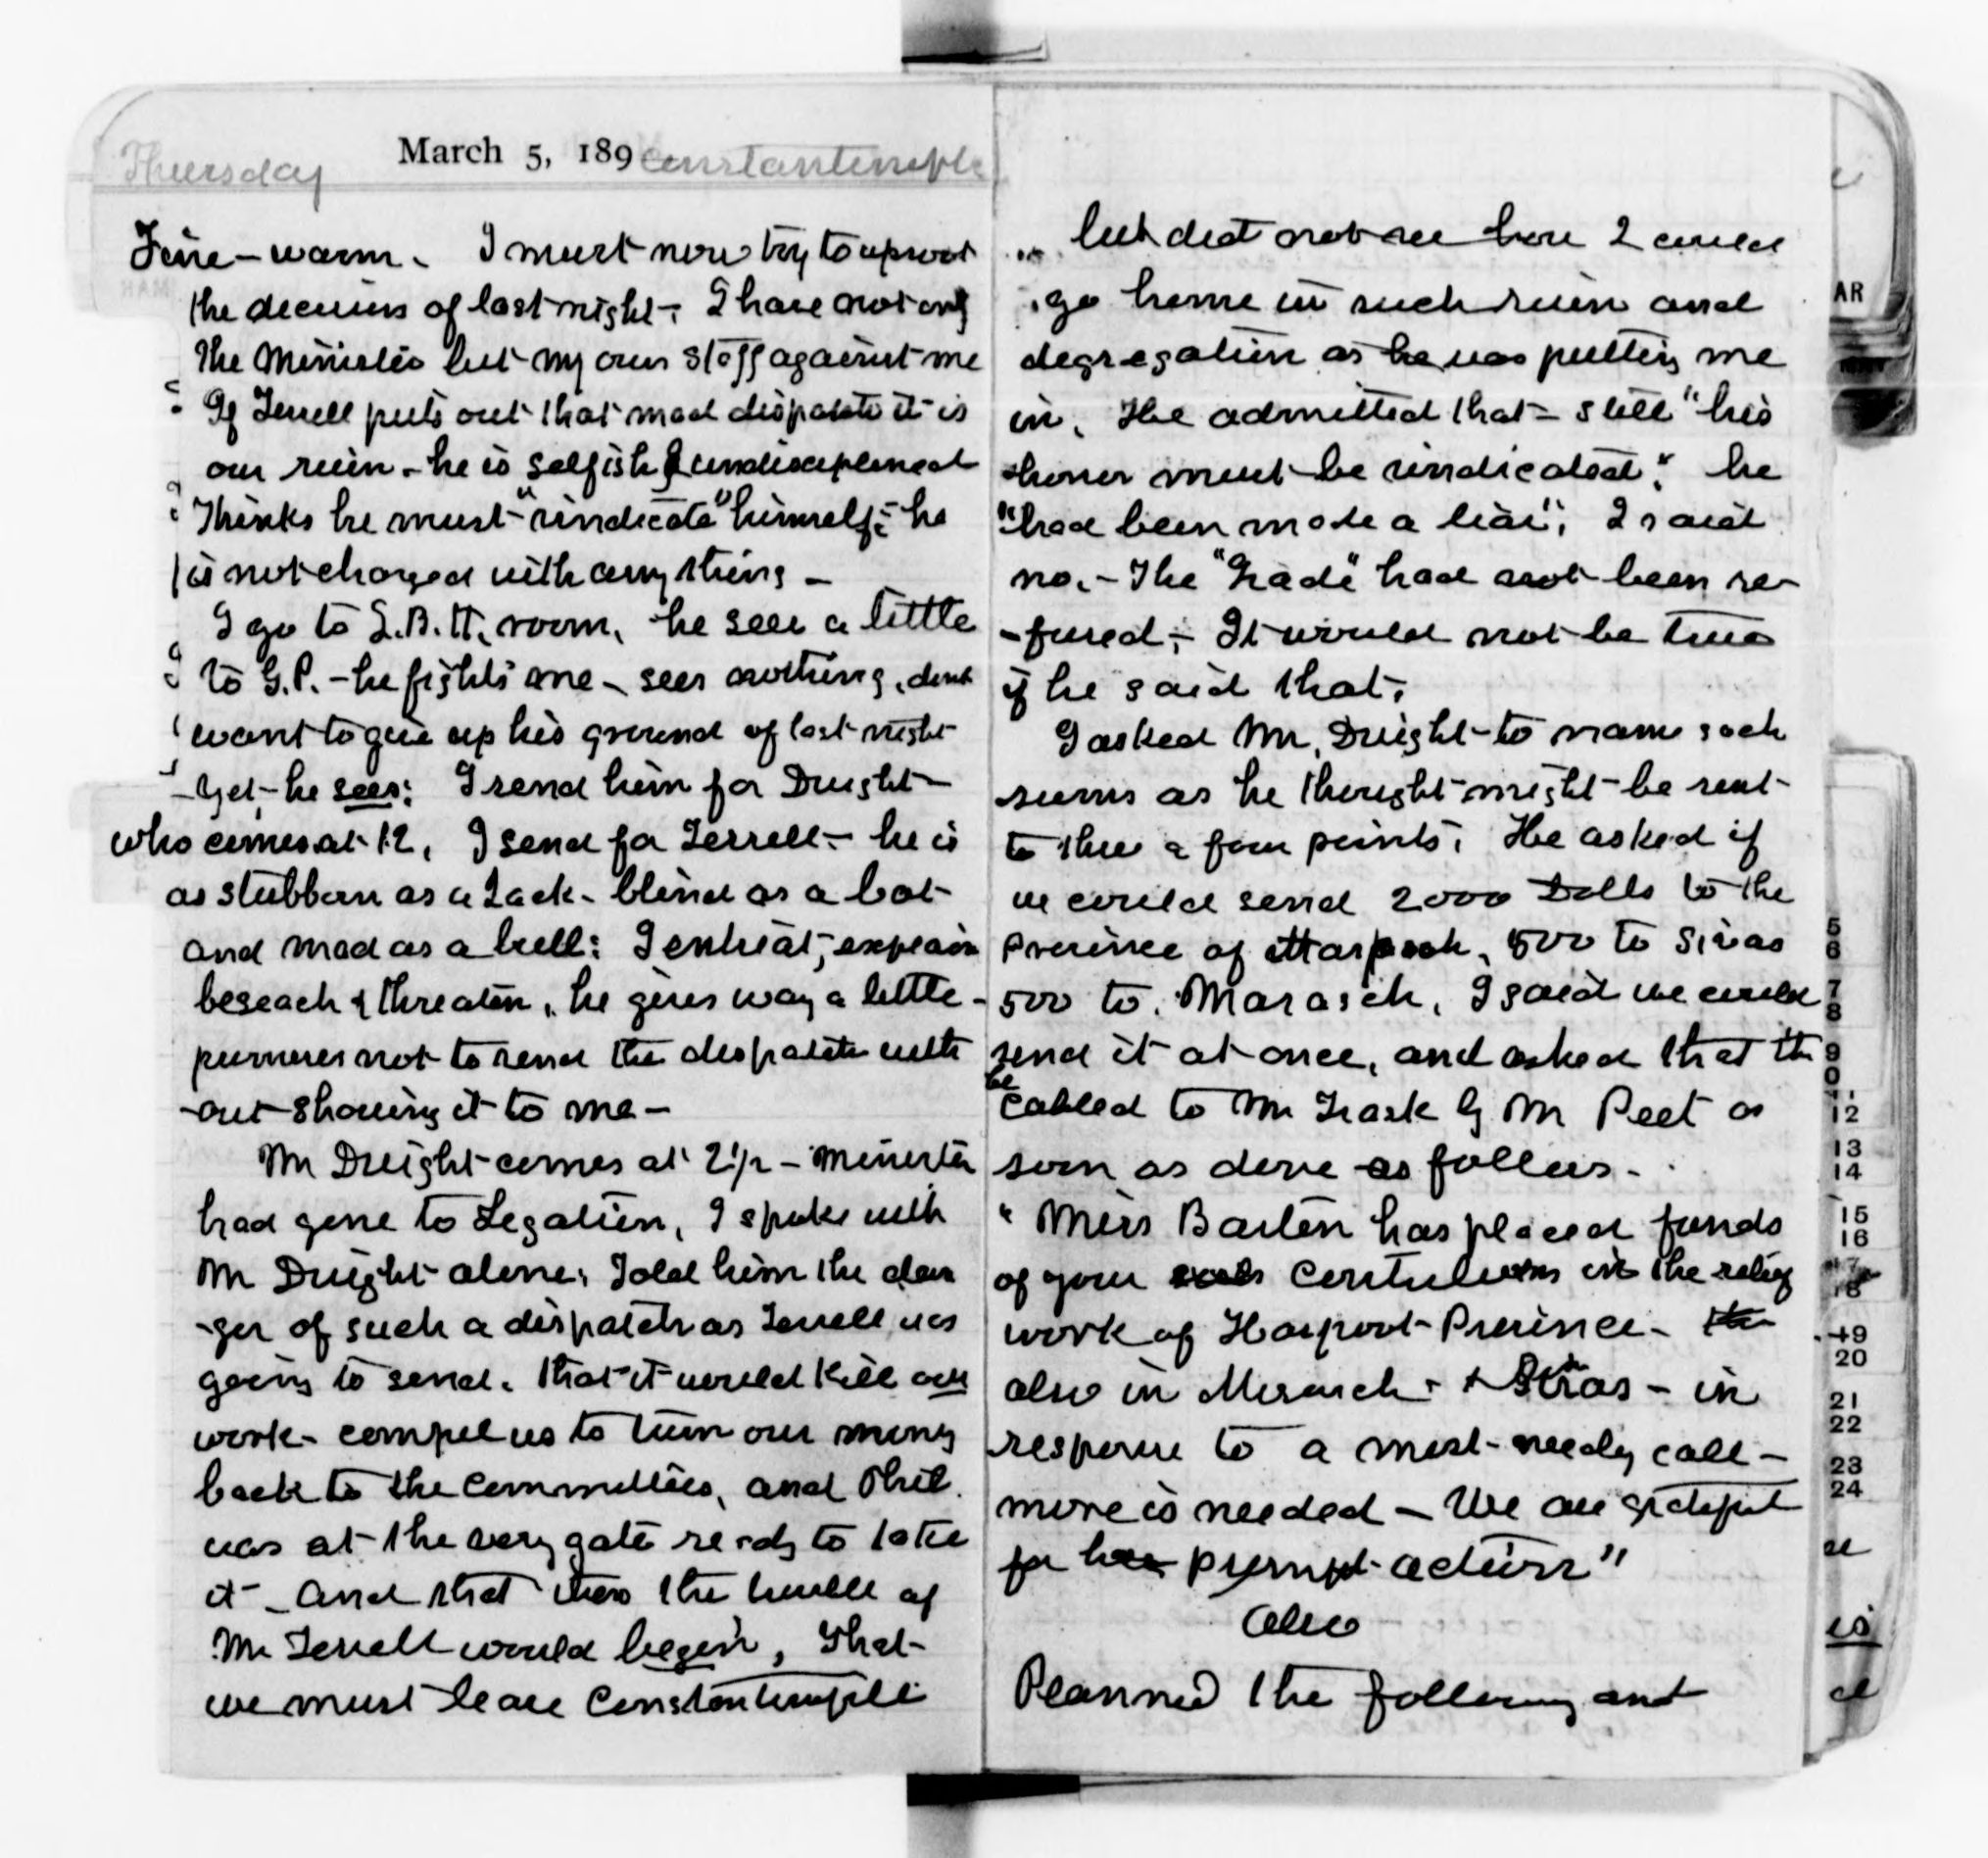 Thursday March 5, 189 Constantinople
Fine – warm. I must now try to uproot
the decisions of last night – I have not only
the Minister but my own staff against me
If Terrell puts out that mad dispatch it is
our ruin – he is selfish & undisciplined
Thinks he must "vindicate" himself – he
is not charged with any thing –
I go to G.B.H. room, he sees a little
to G.P. – he fights me – sees nothing, dont
want to give up his ground of last night
– yet – he sees: I send him for Dwight –
who comes at 12, I send for Terrell – he is
as stubborn as a Jack – blind as a bat –
and mad as a bull: I entreat, explain
beseach & threaten, he gives way a little –
promises not to send the dispatch with
-out showing it to me –
Mr Dwight comes at 2½ – Minister
had gone to Legation, I spoke with
Mr Dwight alone; Told him the dan
-ger of such a dispatch as Terrell was
going to send. that it would kill our
work – compel us to turn our money
back to the Committees, and Phil.
was at the very gate ready to take
it – and that then the trouble of
Mr Terrell would begin, That –
we must leave Constantinople
but did not see how I could
go home in such ruin and
degregation as he was putting me
in. He admitted that – still "his
honor must be vindicated" he
"had been made a liar"; I said
no. – The "Irade" had not been re-
-fused; – It would not be true
if he said that.
I asked Mr. Dwight to name such
sums as he thought might be sent
to three or four points. He asked if
we could send 2000 Dolls to the
Province of Harpoot, 500 to Sivas
500 to Marasch. I said we could
send it at once, and asked that the
be
cabled to Mr Trask by Mr Peet as
soon as done as follows –
"Miss Barton has placed funds
of your contributions in the relief
work of Harpoot Province – the
also in Marasch + Sivas – in
response to a most needy call –
more is needed – We are grateful
for her prompt action"
Also
Planned the following and
AR
5
6
7
8
9
0
11
12
13
14
15
16
17
18
19
20
21
22
23
24